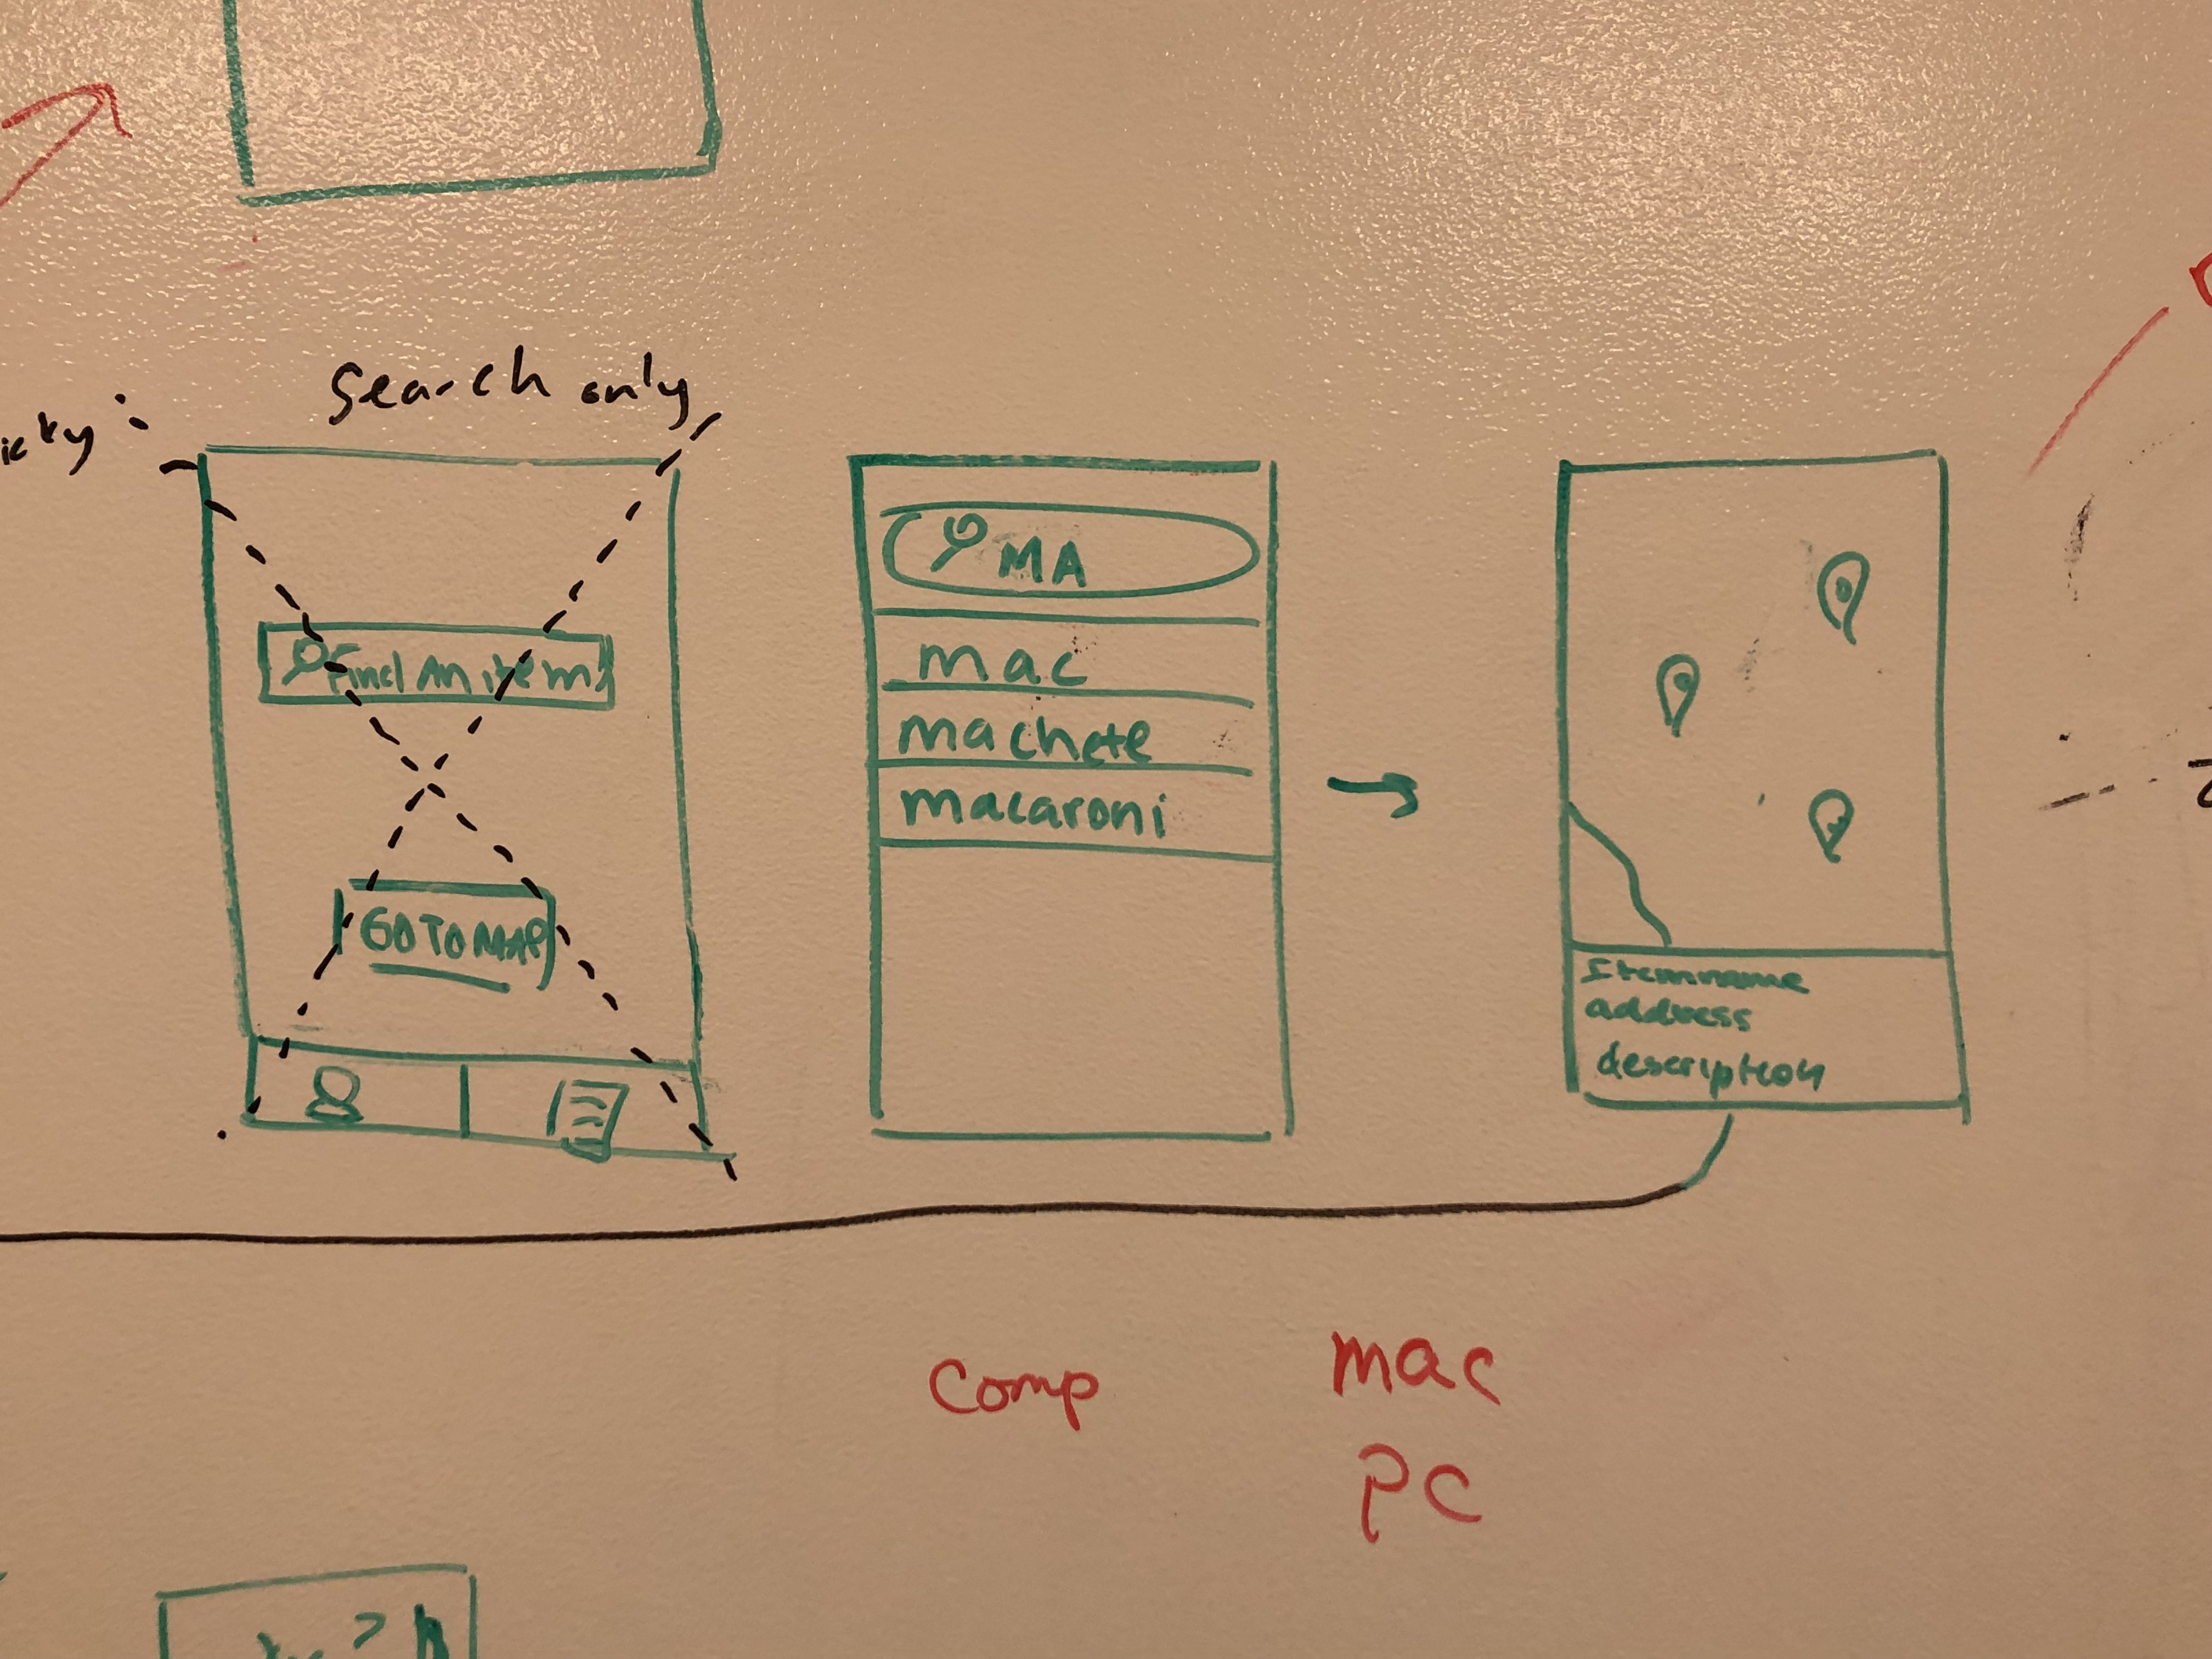 Search only
Find An item
GO TO MAP
MA
mac
machete
macaroni
Itemname
address
description
comp
mac
PC